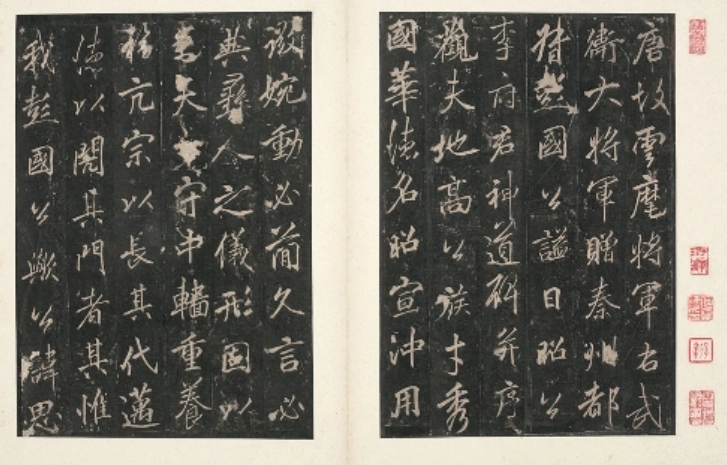 唐故雲麾將軍右武
衛大將軍贈秦州都
督彭國公諡曰昭公
李府君神道碑并序
觀夫地高公族才秀
國華德名昭宣沖用
微婉動必簡久言必
典彝人之儀形固以
天守中轓重養
福亢宗以長其代邁
德以閎其門者其惟
我彭國公歟公諱思